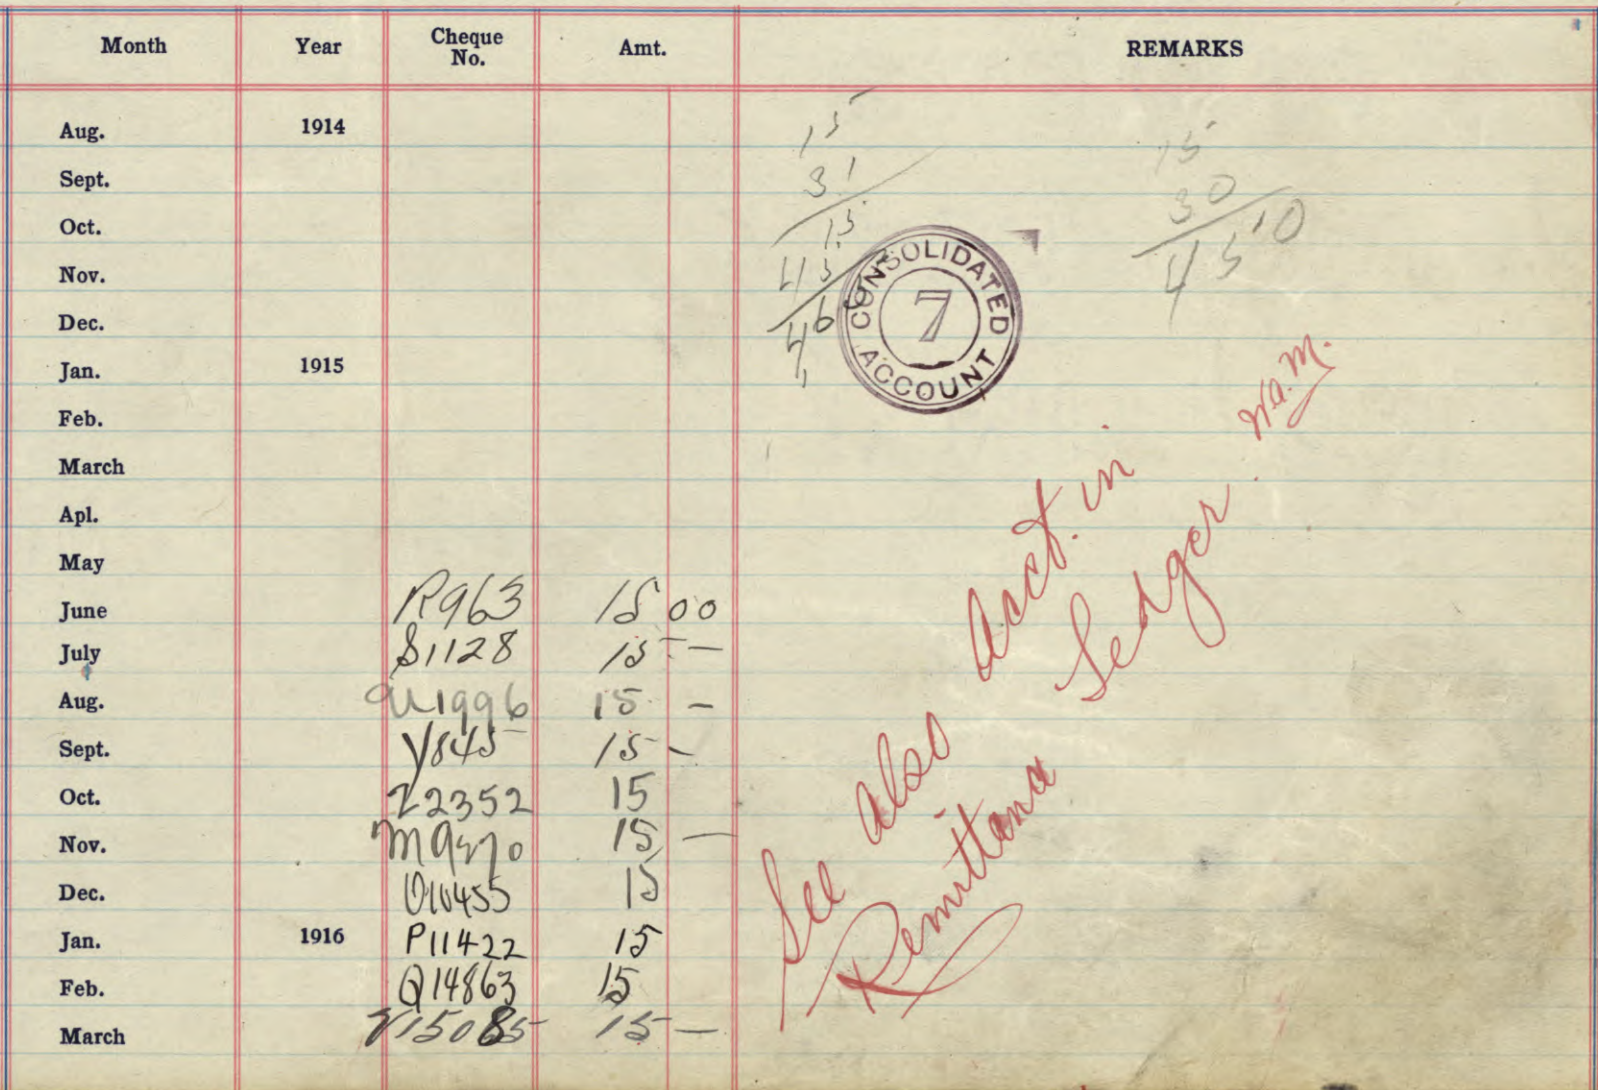 Month Year Cheque No. Amt. REMARKS
Aug. 1914
Sept.
Oct.
Nov.
Dec.
Jan. 1915
Feb.
March
Apl.
May
June R963 15 00
July S1128 15 —
Aug. U1996 15 —
Sept. Y845 15 —
Oct. Z2352 15
Nov. M9370 15 —
Dec. O10455 15
Jan. 1916 P11422 15
Feb. Q14863 15
March 15085 15 —
15
31
15
45
46
15
30
45 10
CONSOLIDATED
7
ACCOUNT
See also acct. in
Remittance Ledger. W.A.M.